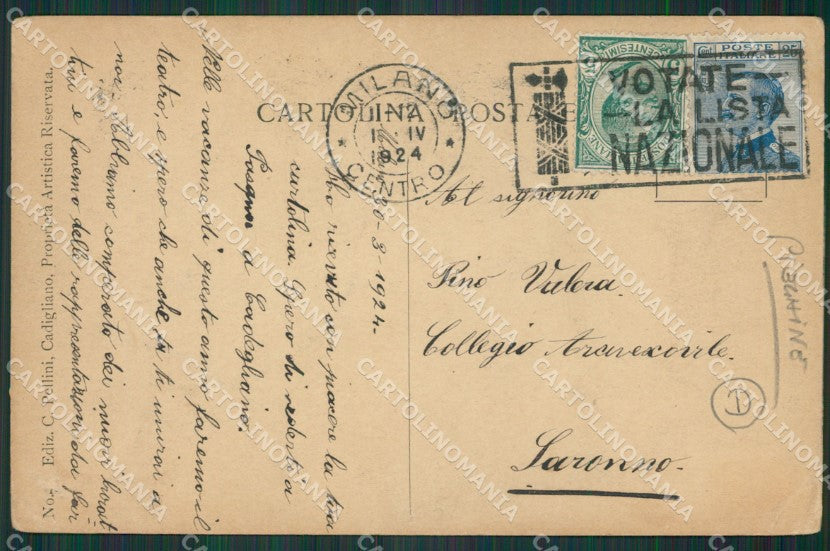 CARTOLINA POSTALE
MILANO
12
1 IV
1924
CENTRO
CENTESIMI
POSTE
ITALIANE
25
VOTATE
LA LISTA
NAZIONALE
Al signorino
Pino Valera.
Collegio Arcivescovile.
Saronno.
PREUNING
No. Ediz. C. Pellini, Cadigliano, Proprietà Artistica Riservata.
30-3-1924.
Ho ricevuto con piacere la tua
cartolina. Spero di vederti a
Pasqua a Cadegliano.
Nelle vacanze di questo anno faremo il
teatro, e spero che anche tu ti unirai a
noi. Abbiamo comperato dei nuovi
e faremo delle rappresentazioni da far
CARTOLINOMANIA